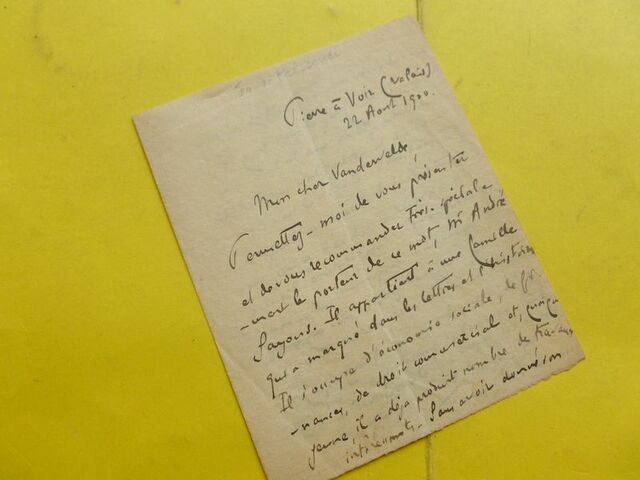 Pierre à Voir (Valais)
22 Août 1900.
Mon cher Vandervelde
Permettez-moi de vous présenter
et de vous recommander très spéciale
-ment le porteur de ce mot, Mr André
Sayous. Il appartient à une famille
qui a marqué dans les lettres et l'histoire
Il s'occupe d'économie sociale, de fi
-nances, de droit commercial et, quoique
jeune, il a déjà produit nombre de travaux
intéressants. Sans avoir